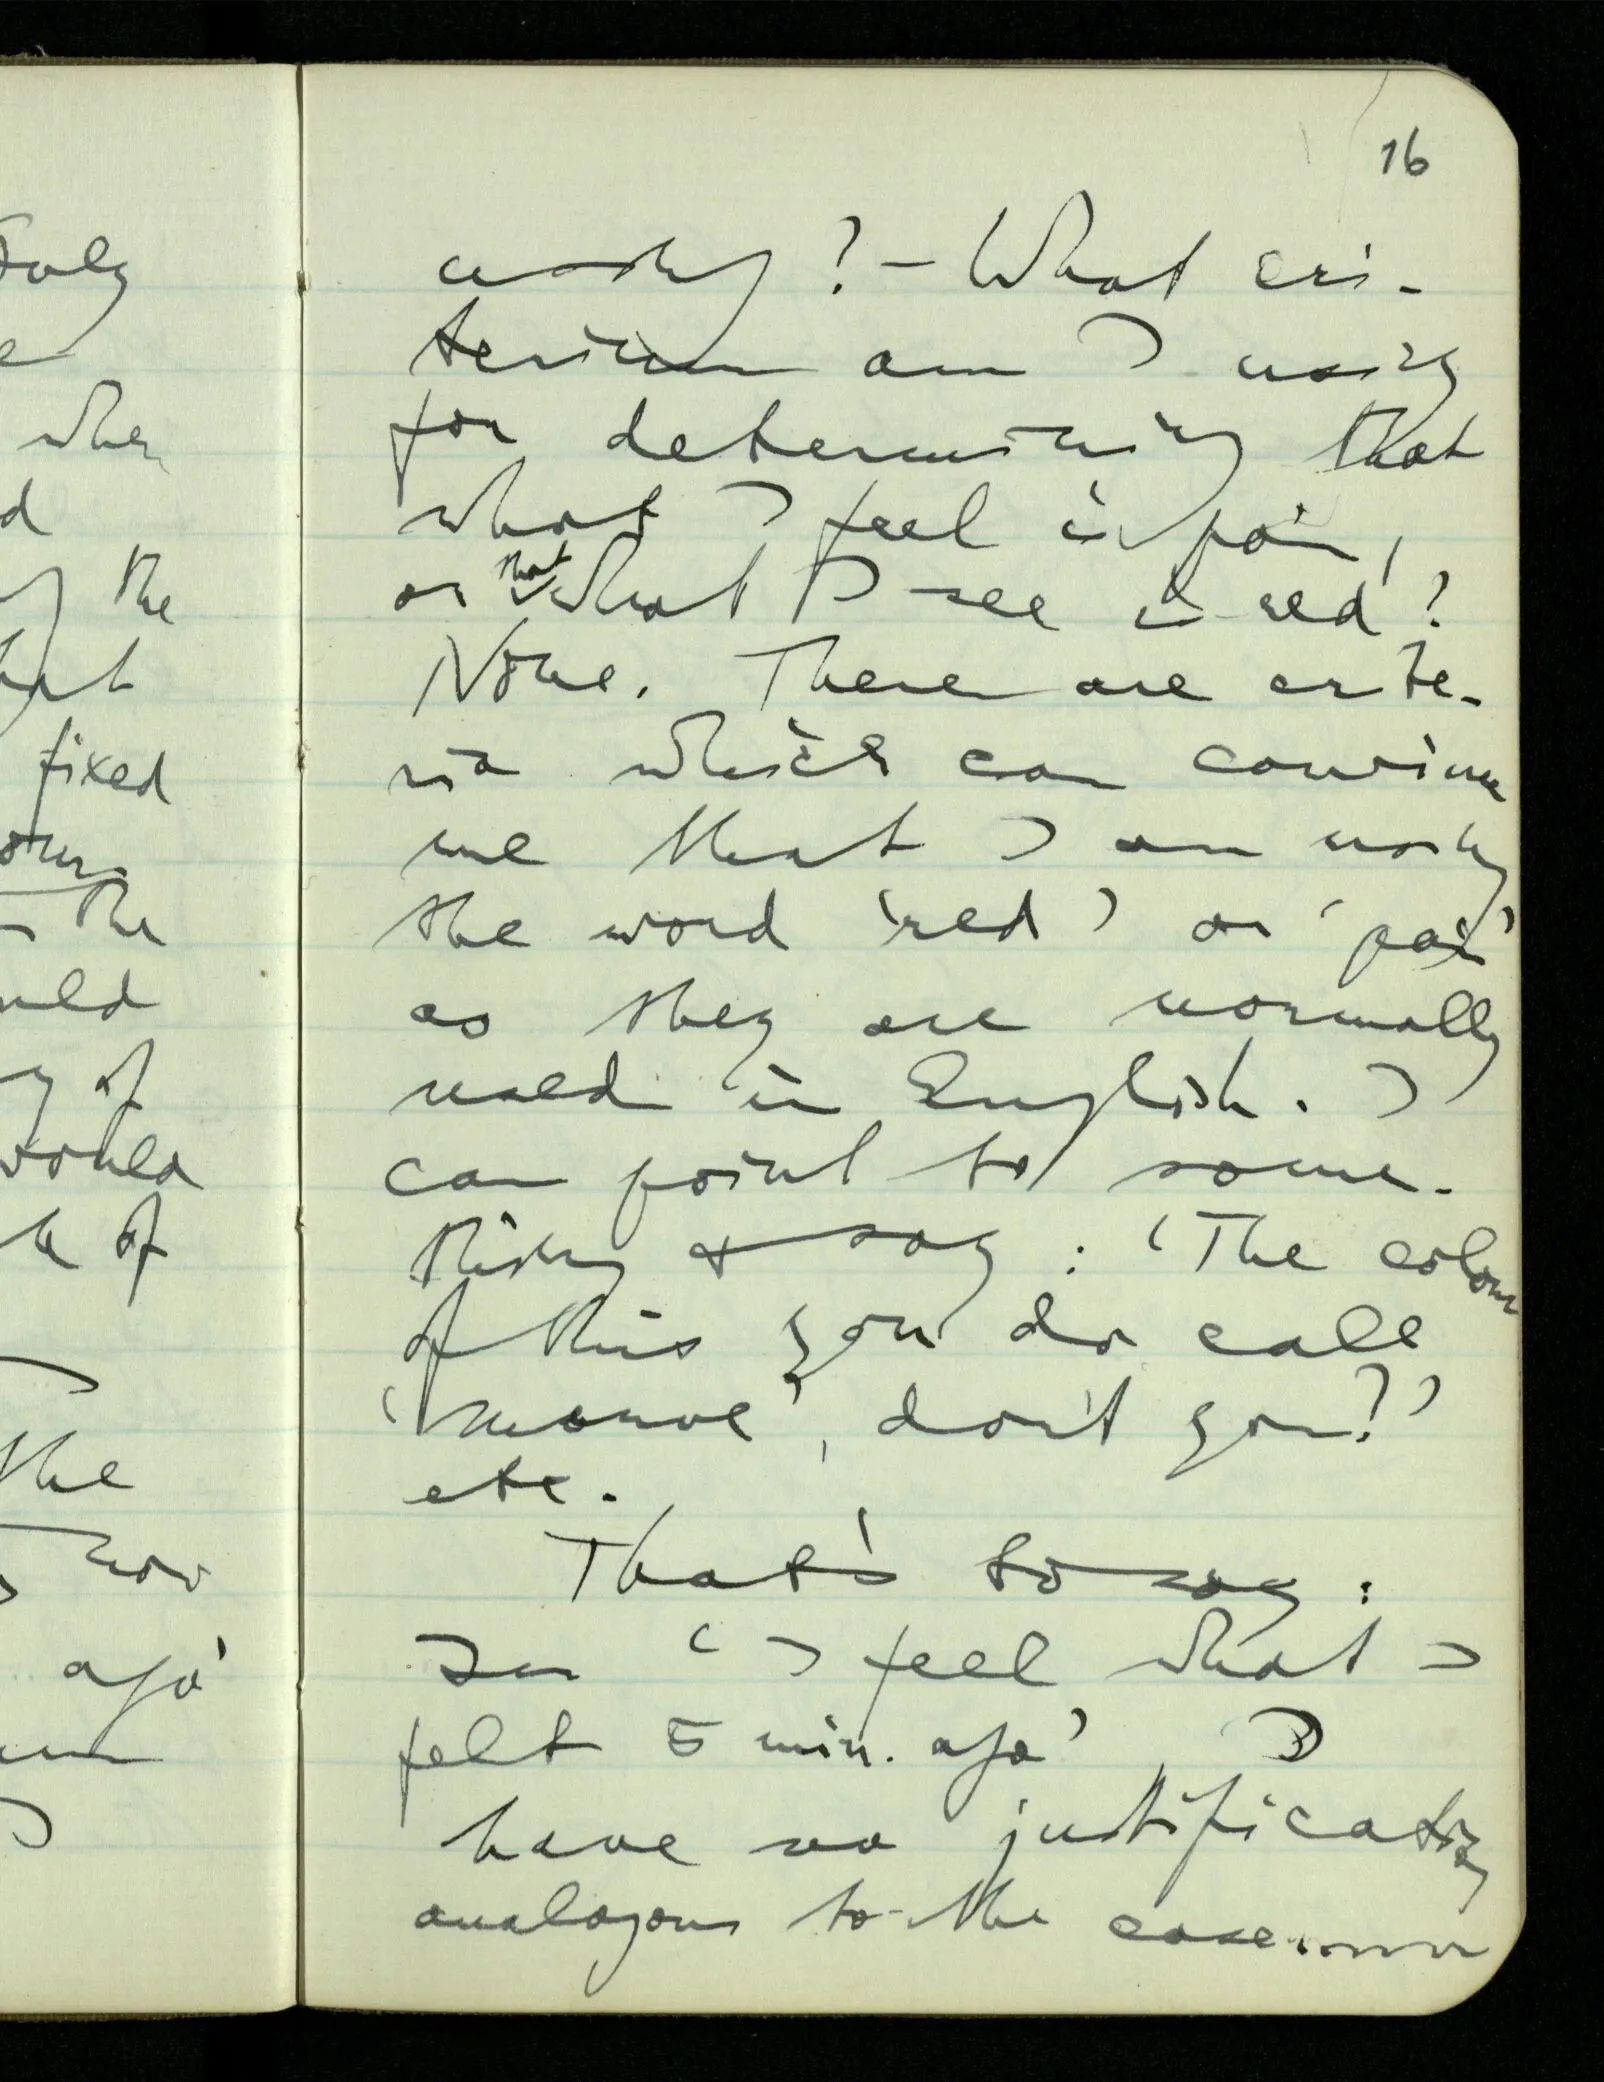 16
July
e
when
d
the
hat
fixed
the
uld
of
would
of
the
now
ago'
using? – What cri-
terium am I using
for determining that
what I feel is pain,
or that what I see is red?
None. There are crite-
ria which can convince
me that I am using
the word 'red' or 'pain'
as they are normally
used in English. I
can point to some-
thing & say: 'The colour
of this you do call
'mauve', don't you?'
etc.
That's to say:
In 'I feel what I
felt 5 min. ago' I
have no justification
analogous to the case